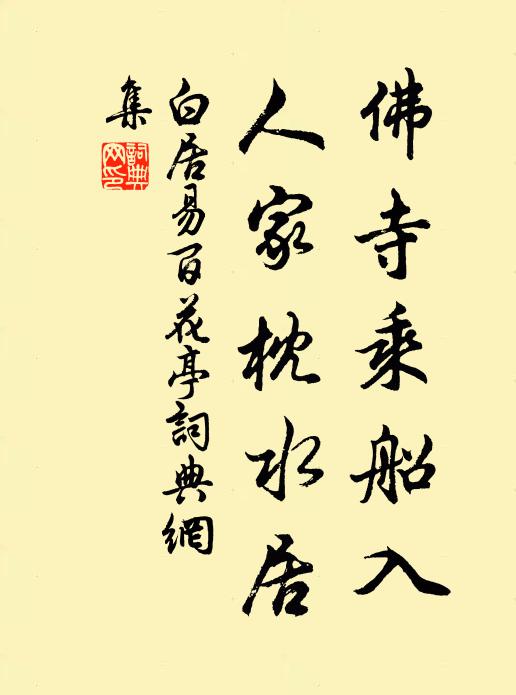 佛寺乘船入
人家枕水居
白居易百花亭詞典網
集
詞典
網印